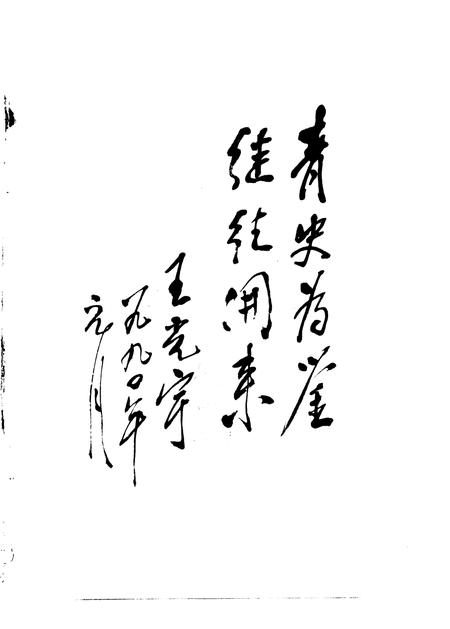 青史为鉴
继往开来
王光宇
一九九〇年
元月